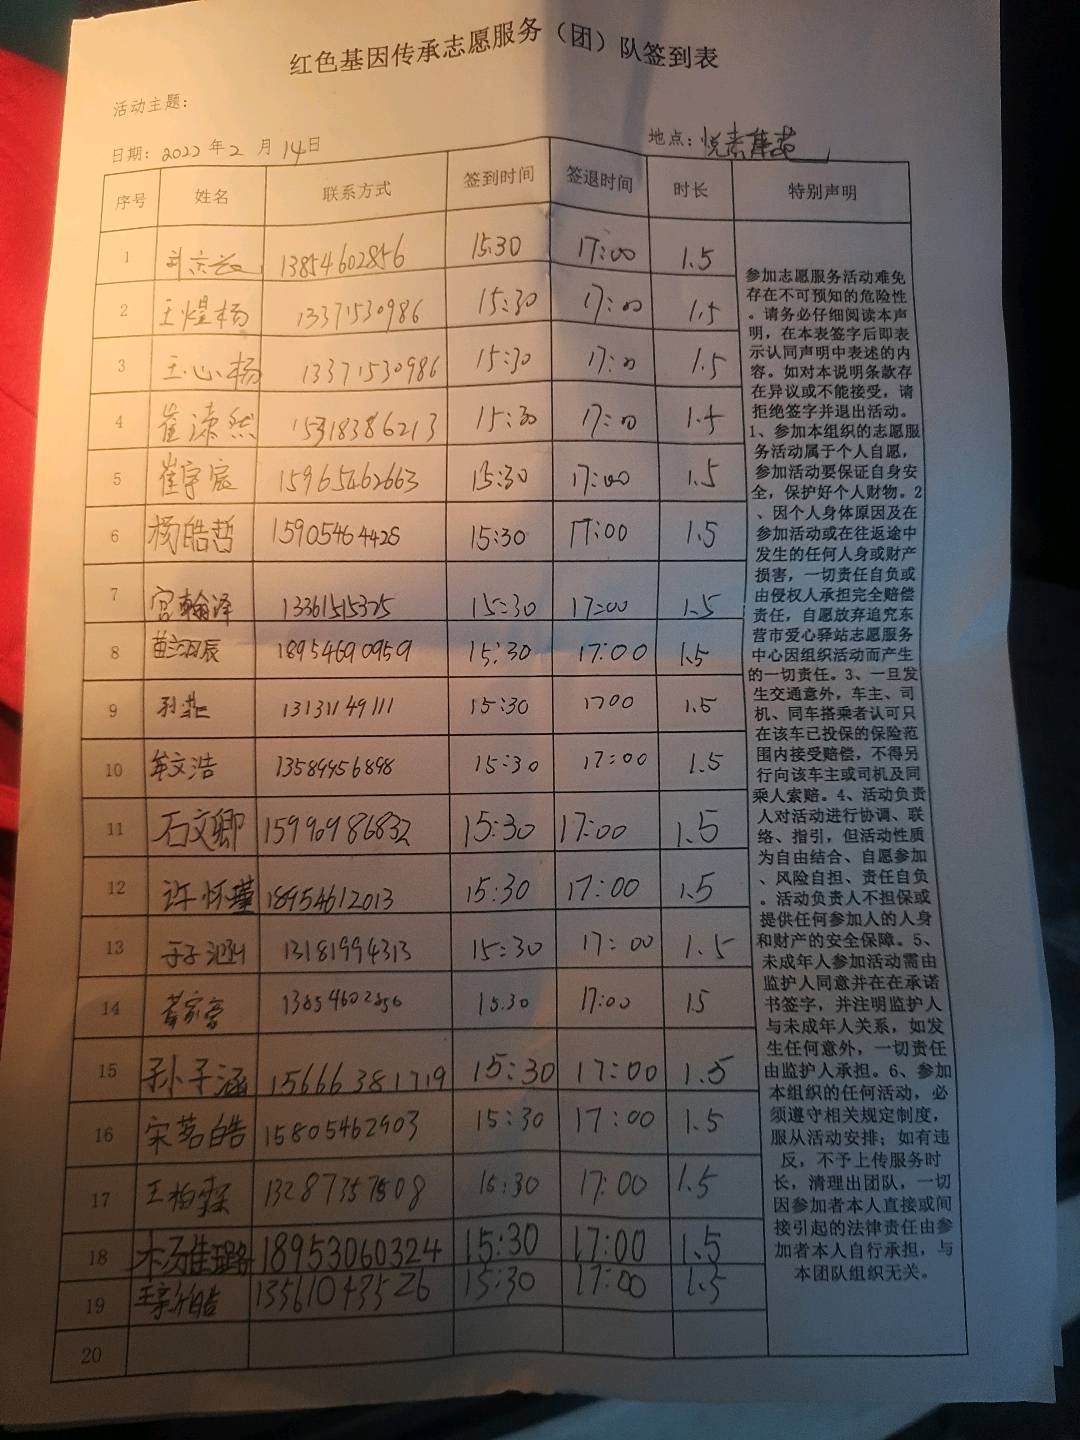 红色基因传承志愿服务（团）队签到表
活动主题：
日期：2022年2月14日 地点：悦
序号 姓名 联系方式 签到时间 签退时间 时长 特别声明
1 13854602856 15:30 17:00 1.5
2 王煜杨 13371530986 15:30 17:00 1.5
3 王心杨 13371530986 15:30 17:00 1.5
4 崔涑然 15318386213 15:30 17:00 1.5
5 崔宇宸 15965462663 15:30 17:00 1.5
6 杨皓哲 15905464428 15:30 17:00 1.5
7 宫翰泽 13361515325 15:30 17:00 1.5
8 18954690959 15:30 17:00 1.5
9 13131149111 15:30 1700 1.5
10 牟文浩 13589956898 15:30 17:00 1.5
11 石文卿 15990986832 15:30 17:00 1.5
12 许怀瑾 18954612013 15:30 17:00 1.5
13 于子涵 13181994313 15:30 17:00 1.5
14 13854602856 15:30 17:00 15
15 孙子涵 15666381719 15:30 17:00 1.5
16 宋茗皓 15805462903 15:30 17:00 1.5
17 王柏霖 13287357508 15:30 17:00 1.5
18 18953060324 15:30 17:00 1.5
19 13561043526 15:30 17:00 1.5
20
参加志愿服务活动难免
存在不可预知的危险性
。请务必仔细阅读本声
明，在本表签字后即表
示认同声明中表述的内
容。如对本说明条款存
在异议或不能接受，请
拒绝签字并退出活动。
1、参加本组织的志愿服
务活动属于个人自愿，
参加活动要保证自身安
全，保护好个人财物。2
、因个人身体原因及在
参加活动或在往返途中
发生的任何人身或财产
损害，一切责任自负或
由侵权人承担完全赔偿
责任，自愿放弃追究东
营市爱心驿站志愿服务
中心因组织活动而产生
的一切责任。3、一旦发
生交通意外，车主、司
机、同车搭乘者认可只
在该车已投保的保险范
围内接受赔偿，不得另
行向该车主或司机及同
乘人索赔。4、活动负责
人对活动进行协调、联
络、指引，但活动性质
为自由结合、自愿参加
、风险自担、责任自负
。活动负责人不担保或
提供任何参加人的人身
和财产的安全保障。5、
未成年人参加活动需由
监护人同意并在在承诺
书签字，并注明监护人
与未成年人关系，如发
生任何意外，一切责任
由监护人承担。6、参加
本组织的任何活动，必
须遵守相关规定制度，
服从活动安排；如有违
反，不予上传服务时
长，清理出团队，一切
因参加者本人直接或间
接引起的法律责任由参
加者本人自行承担，与
本团队组织无关。